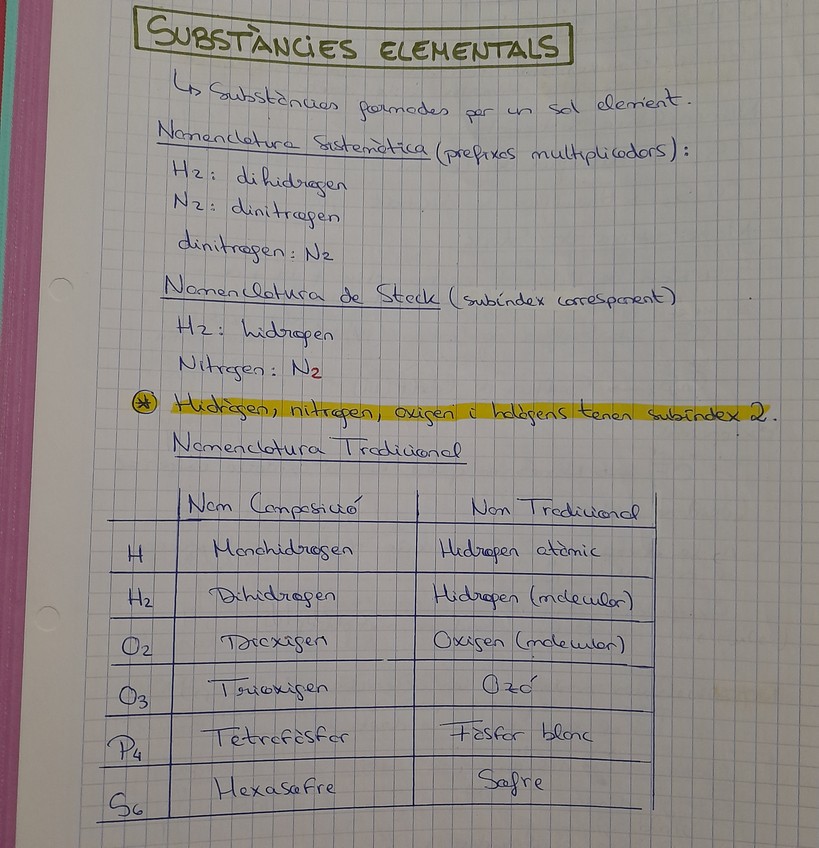 SUBSTÀNCIES ELEMENTALS
↳ Substàncies formades per un sol element.
Nomenclatura Sistemàtica (prefixos multiplicadors):
H2: dihidrogen
N2: dinitrogen
dinitrogen: N2
Nomenclatura de Stock (subíndex corresponent)
H2: hidrogen
Nitrogen: N2
* Hidrògen, nitrogen, oxigen i halògens tenen subíndex 2.
Nomenclatura Tradicional
Nom Composició Nom Tradicional
H Monohidrogen Hidrogen atòmic
H2 Dihidrogen Hidrogen (molecular)
O2 Dioxigen Oxigen (molecular)
O3 Trioxigen Ozó
P4 Tetrafòsfor Fòsfor blanc
S6 Hexasofre Sofre